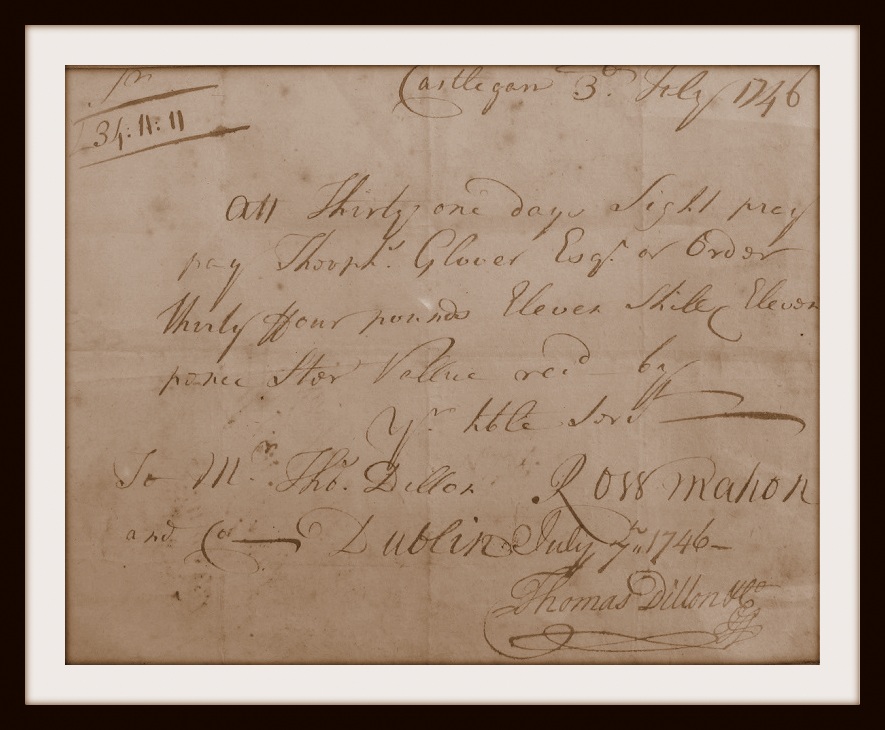 Castlegar 3.d July 1746
34: 11: 11
Att Thirty one days Sight pray
pay Theoph.s Glover Esq.r or Order
thirty ffour pounds Eleven Shill Eleven
pence Ster Vallue recd by
Yr. hble Servt
To Mr. Tho.s Dillon Ross Mahon
and Co Dublin July 7.. 1746
Thomas Dillon & Co